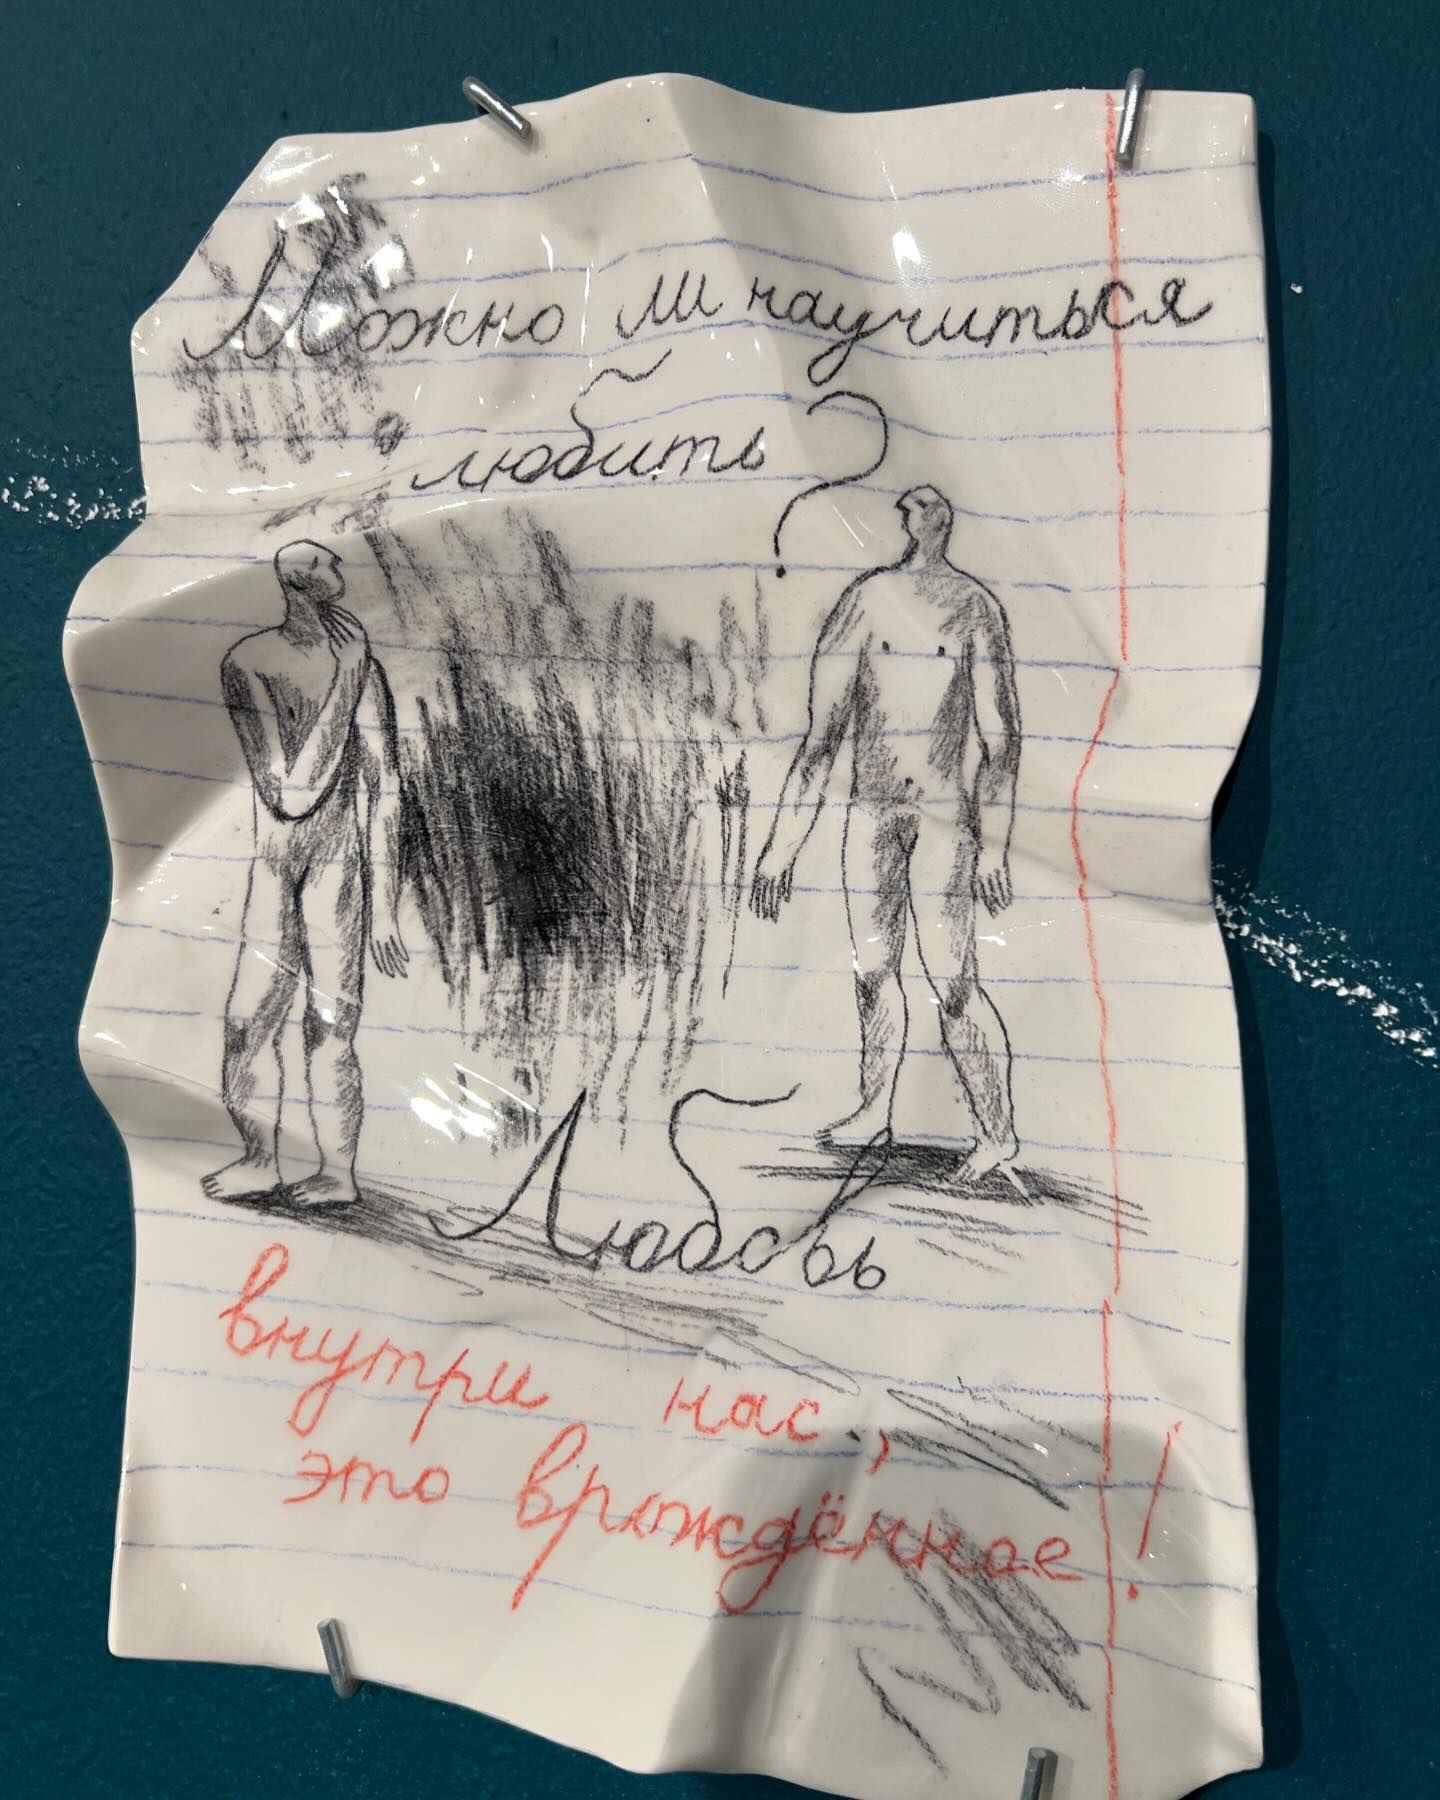 Можно ли научиться
любить ?
Любовь
внутри нас,
это врождённое!